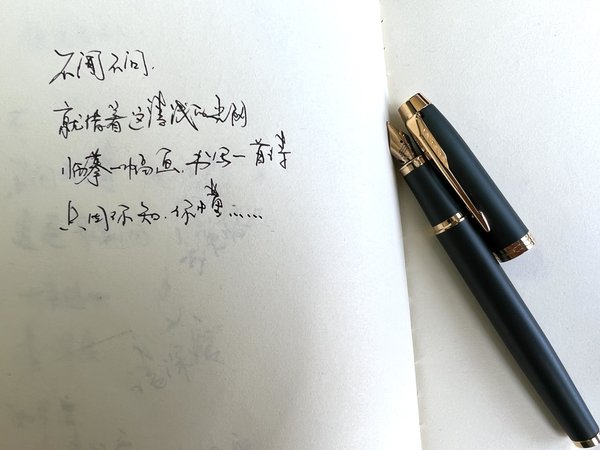 不闻不问.
就借着这清浅的光阴
临摹一幅画.书写一首诗
只因不知.你懂……